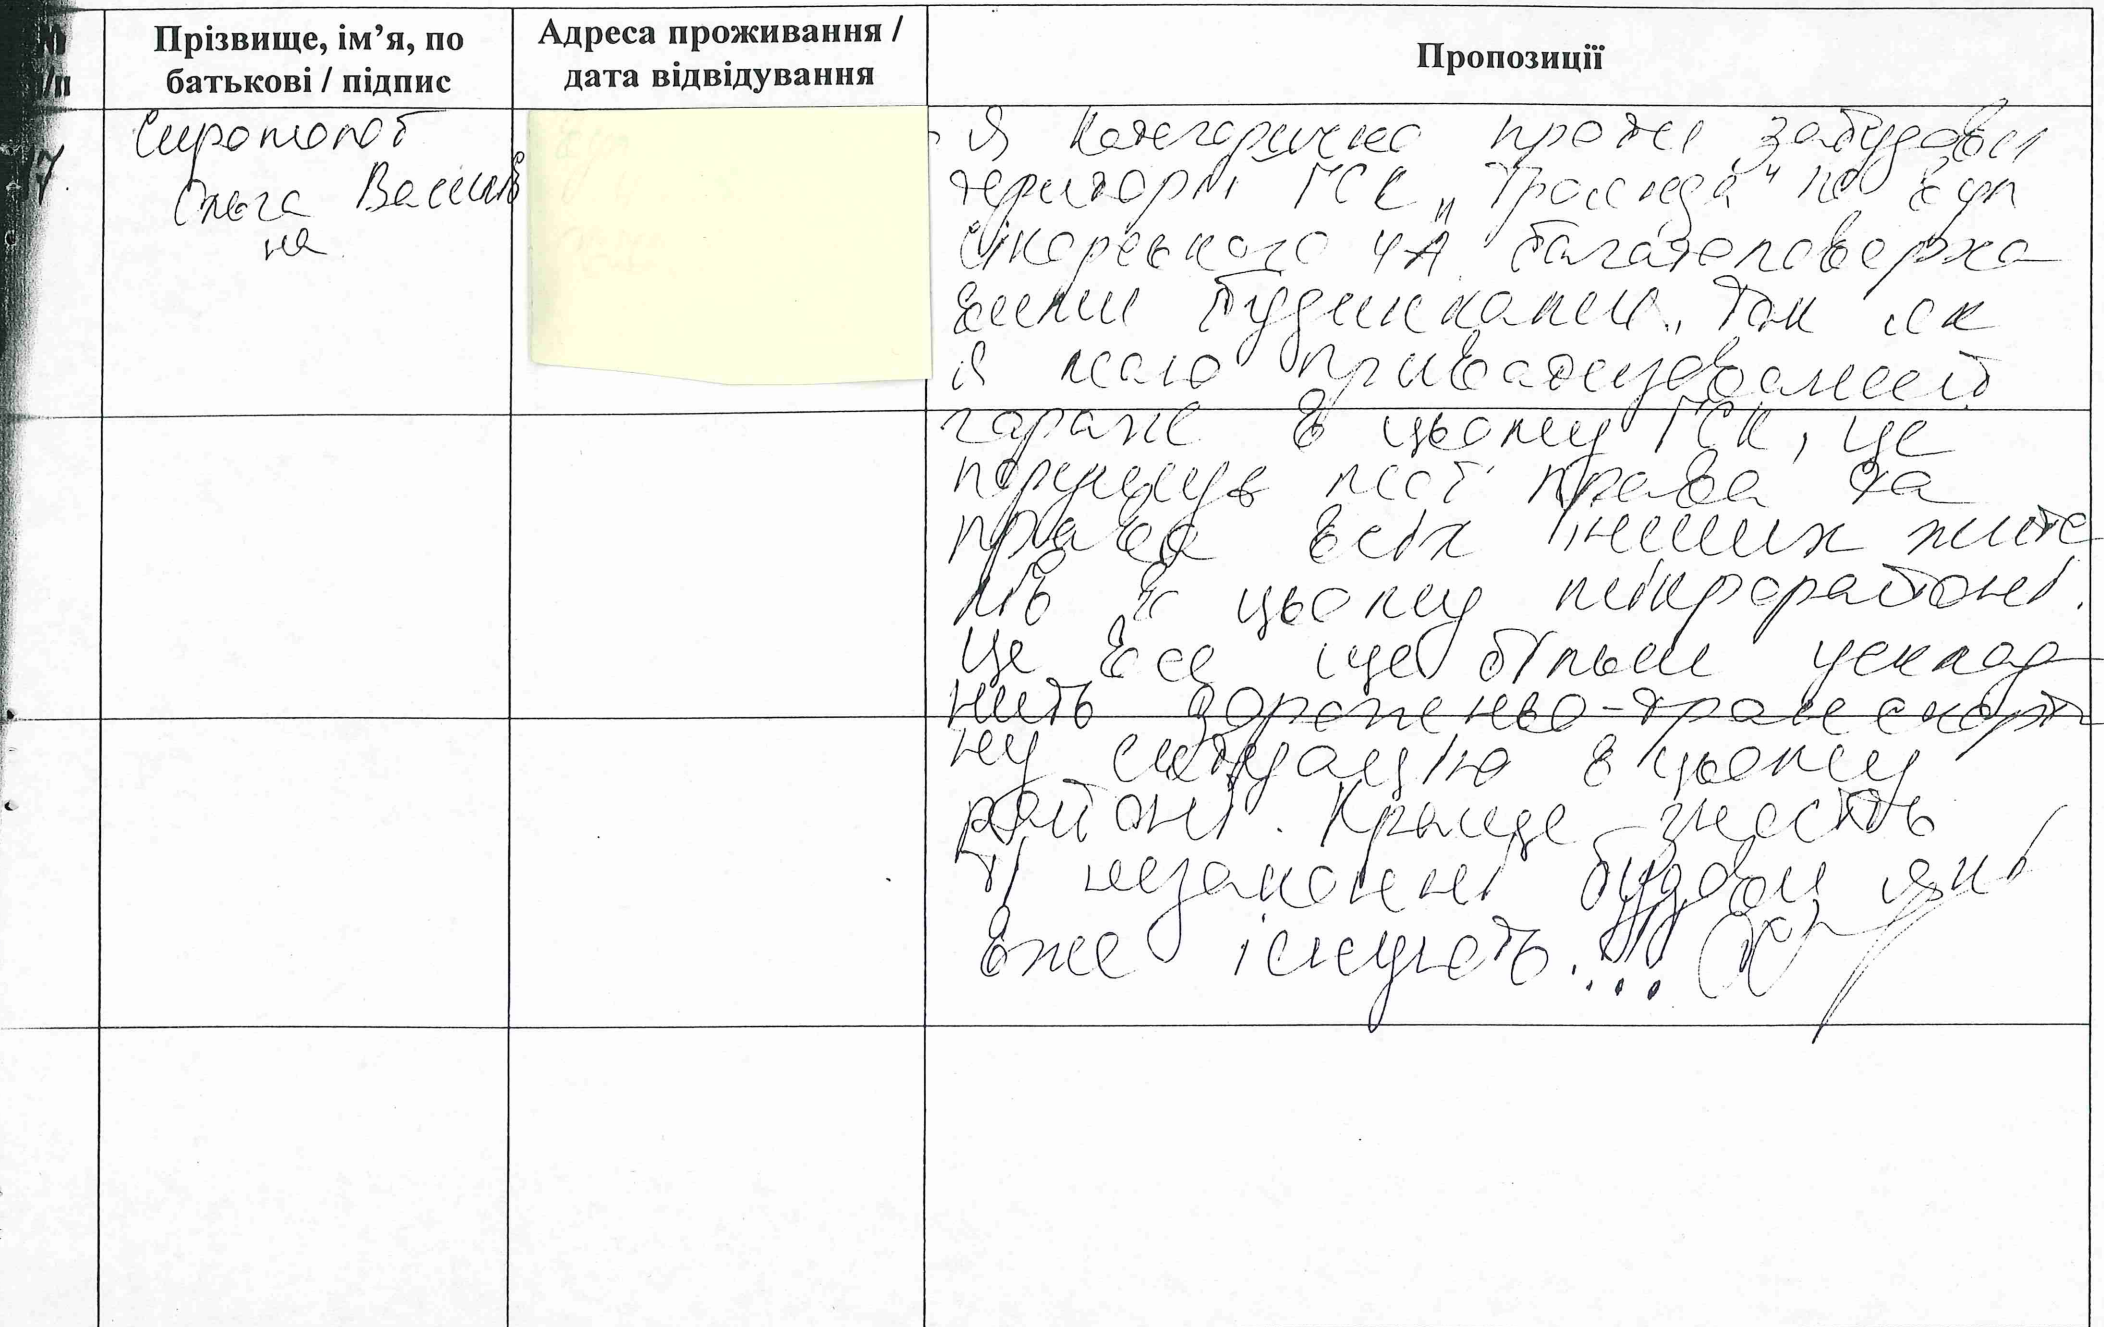 Прізвище, ім’я, по
батькові / підпис
Адреса проживання /
дата відвідування
Пропозиції
7.
Ольга Василів
на
Я категорично проти забудови
території ГСК „Троянда" по вул
Сікорського 4А багатоповерхо
вими будинками, так як
я маю приватизований
гараж в цьому ГСК, це
порушує мої права та
права всіх інших жите
лів в цьому мікрорайоні.
Це все ще більш усклад
нить дорожньо-транспорт
ну ситуацію в цьому
районі. Краще знесіть
ті незаконні будови які
вже існують...